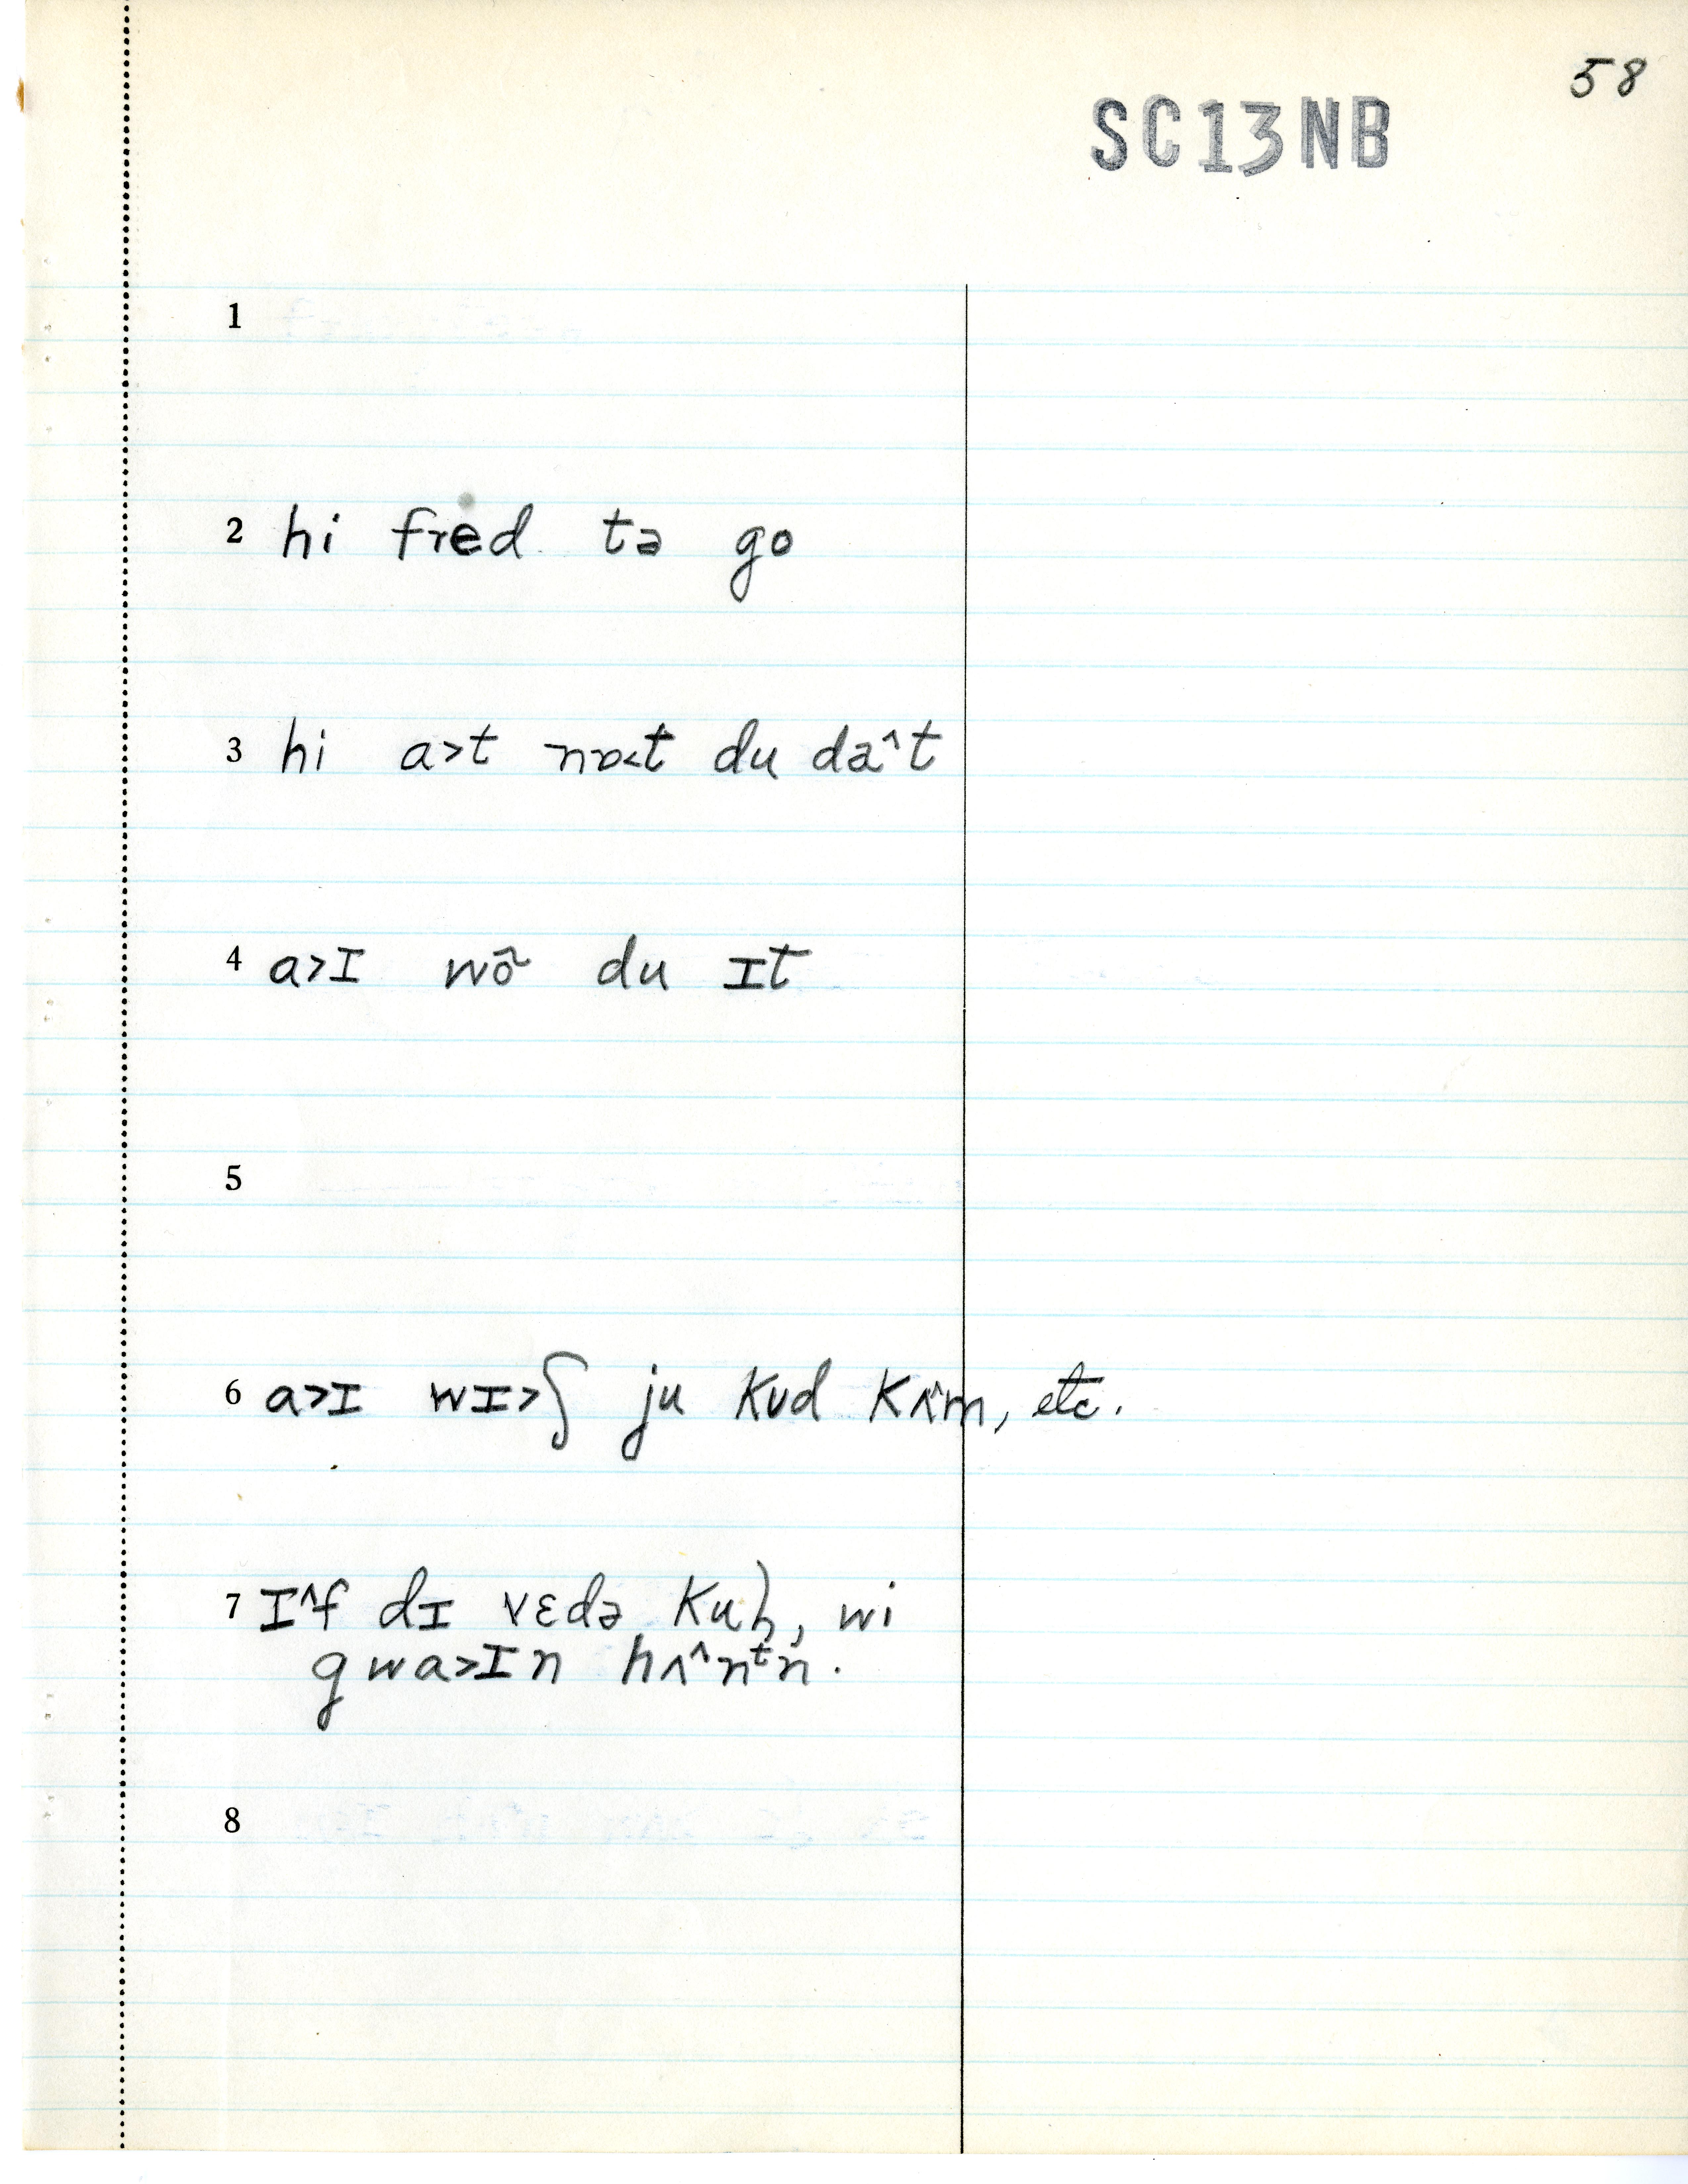 58
SC13NB
1
2 hi fred tə go
3 hi a>t nɒ<t du də^t
4 a>ɪ wõ du ɪt
5
6 a>ɪ wɪ>ʃ ju kʊd kʌ^m, etc.
7 ɪ^f dɪ vɛdə kuḥ, wi
gwa>ɪn hʌ^nᵗn.
8